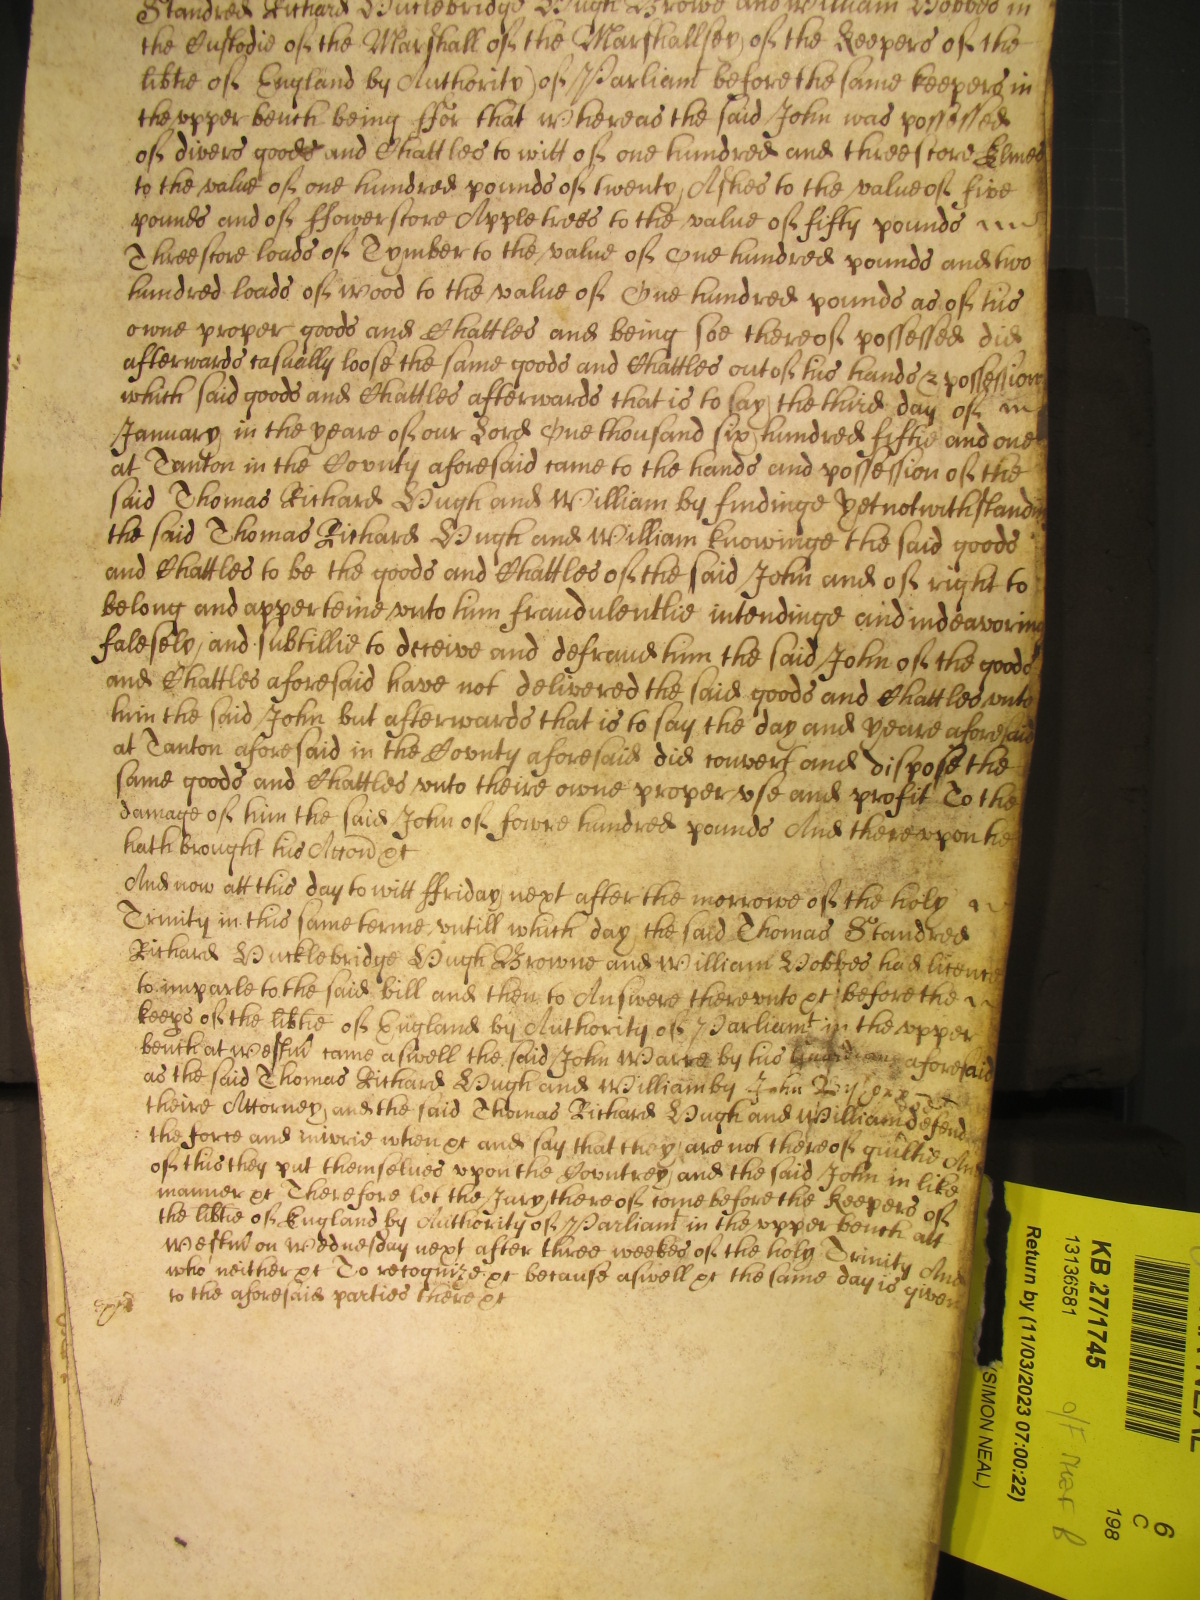 Standred Richard Hucklebridge Hugh Browne and William Hobbes in
the Custodie of the Marshall of the Marshallsey of the Keepers of the
lib̃tie of England by Authority of Parliam̃t before the same keepers in
the vpper bench being ffor that Whereas the said John was possessed
of divers goods and Chattles to witt of one hundred and threescore Elmes
to the value of one hundred pounds of twenty Ashes to the value of five
pounds and of ffowerscore Apple trees to the value of fifty pounds
Threescore loads of Tymber to the value of One hundred pounds and two
hundred loads of wood to the value of One hundred pounds as of his
owne proper goods and Chattles and being soe thereof possessed did
afterwards casually loose the same goods and Chattles out of his hands & possession
which said goods and Chattles afterwards that is to say the third day of
January in the yeare of our Lord One thousand six hundred fiftie and one
at Tanton in the County aforesaid came to the hands and possession of the
said Thomas Richard Hugh and William by findinge Yet notwithstandin
the said Thomas Richard Hugh and William knowinge the said goods
and Chattles to be the goods and Chattles of the said John and of right to
belong and apperteine vnto him fraudulentlie intendinge and indeavoring
falesely and subtillie to deceive and defraud him the said John of the goods
and Chattles aforesaid have not delivered the said goods and Chattles vnto
him the said John but afterwards that is to say the day and yeare aforesaid
at Tanton aforesaid in the County aforesaid did convert and dispose the
same goods and Chattles vnto theire owne proper vse and profit To the
damage of him the said John of fowre hundred pounds And therevpon he
hath brought his Accon̄ &c
And now att this day to witt ffriday next after the morrowe of the holy
Trinity in this same terme vntill which day the said Thomas Standred
Richard Hucklebridge Hugh Browne and William Hobbes had licence
to imparle to the said bill and then to Answere therevnto &c before the
keep̃s of the lib̃tie of England by Authority of Parliam̃t in the vpper
bench at Westm̃ came aswell the said John Warre by his Guardian aforesaid
as the said Thomas Richard Hugh and William by John
theire Attorney and the said Thomas Richard Hugh and William defend
the force and iniurie when &c and say that they are not thereof guiltie And
of this they put themselues vpon the Countrey and the said John in like
manner &c Therefore let the Jury thereof come before the Keepers of
the lib̃tie of England by Authority of Parliam̃t in the vpper bench att
Westm̃ on Wednesday next after three weekes of the holy Trinity And
who neither &c To recognize &c because aswell &c the same day is given
to the aforesaid parties there &c
KB 27/1745
13136581
Return by (11/03/2023 07:00:22)
(SIMON NEAL)
6
C
198